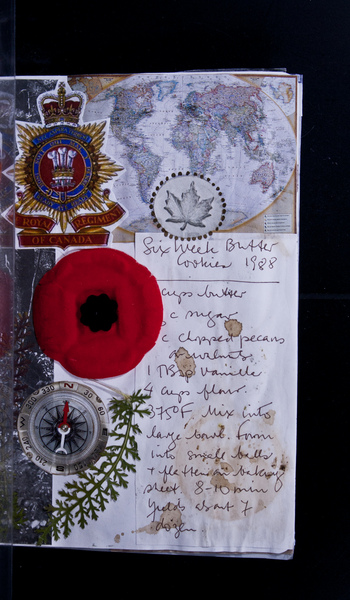 ROYAL REGIMENT
OF CANADA
Six Week Butter
Cookies 1988
cups butter
c sugar
c chopped pecans
or walnuts
1 TBsp vanilla
4 cups flour.
375°F Mix into
large bowl. Form
into small balls
+ flatten on baking
sheet. 8-10 min
Yields about 7
dozen
N
E
S
W